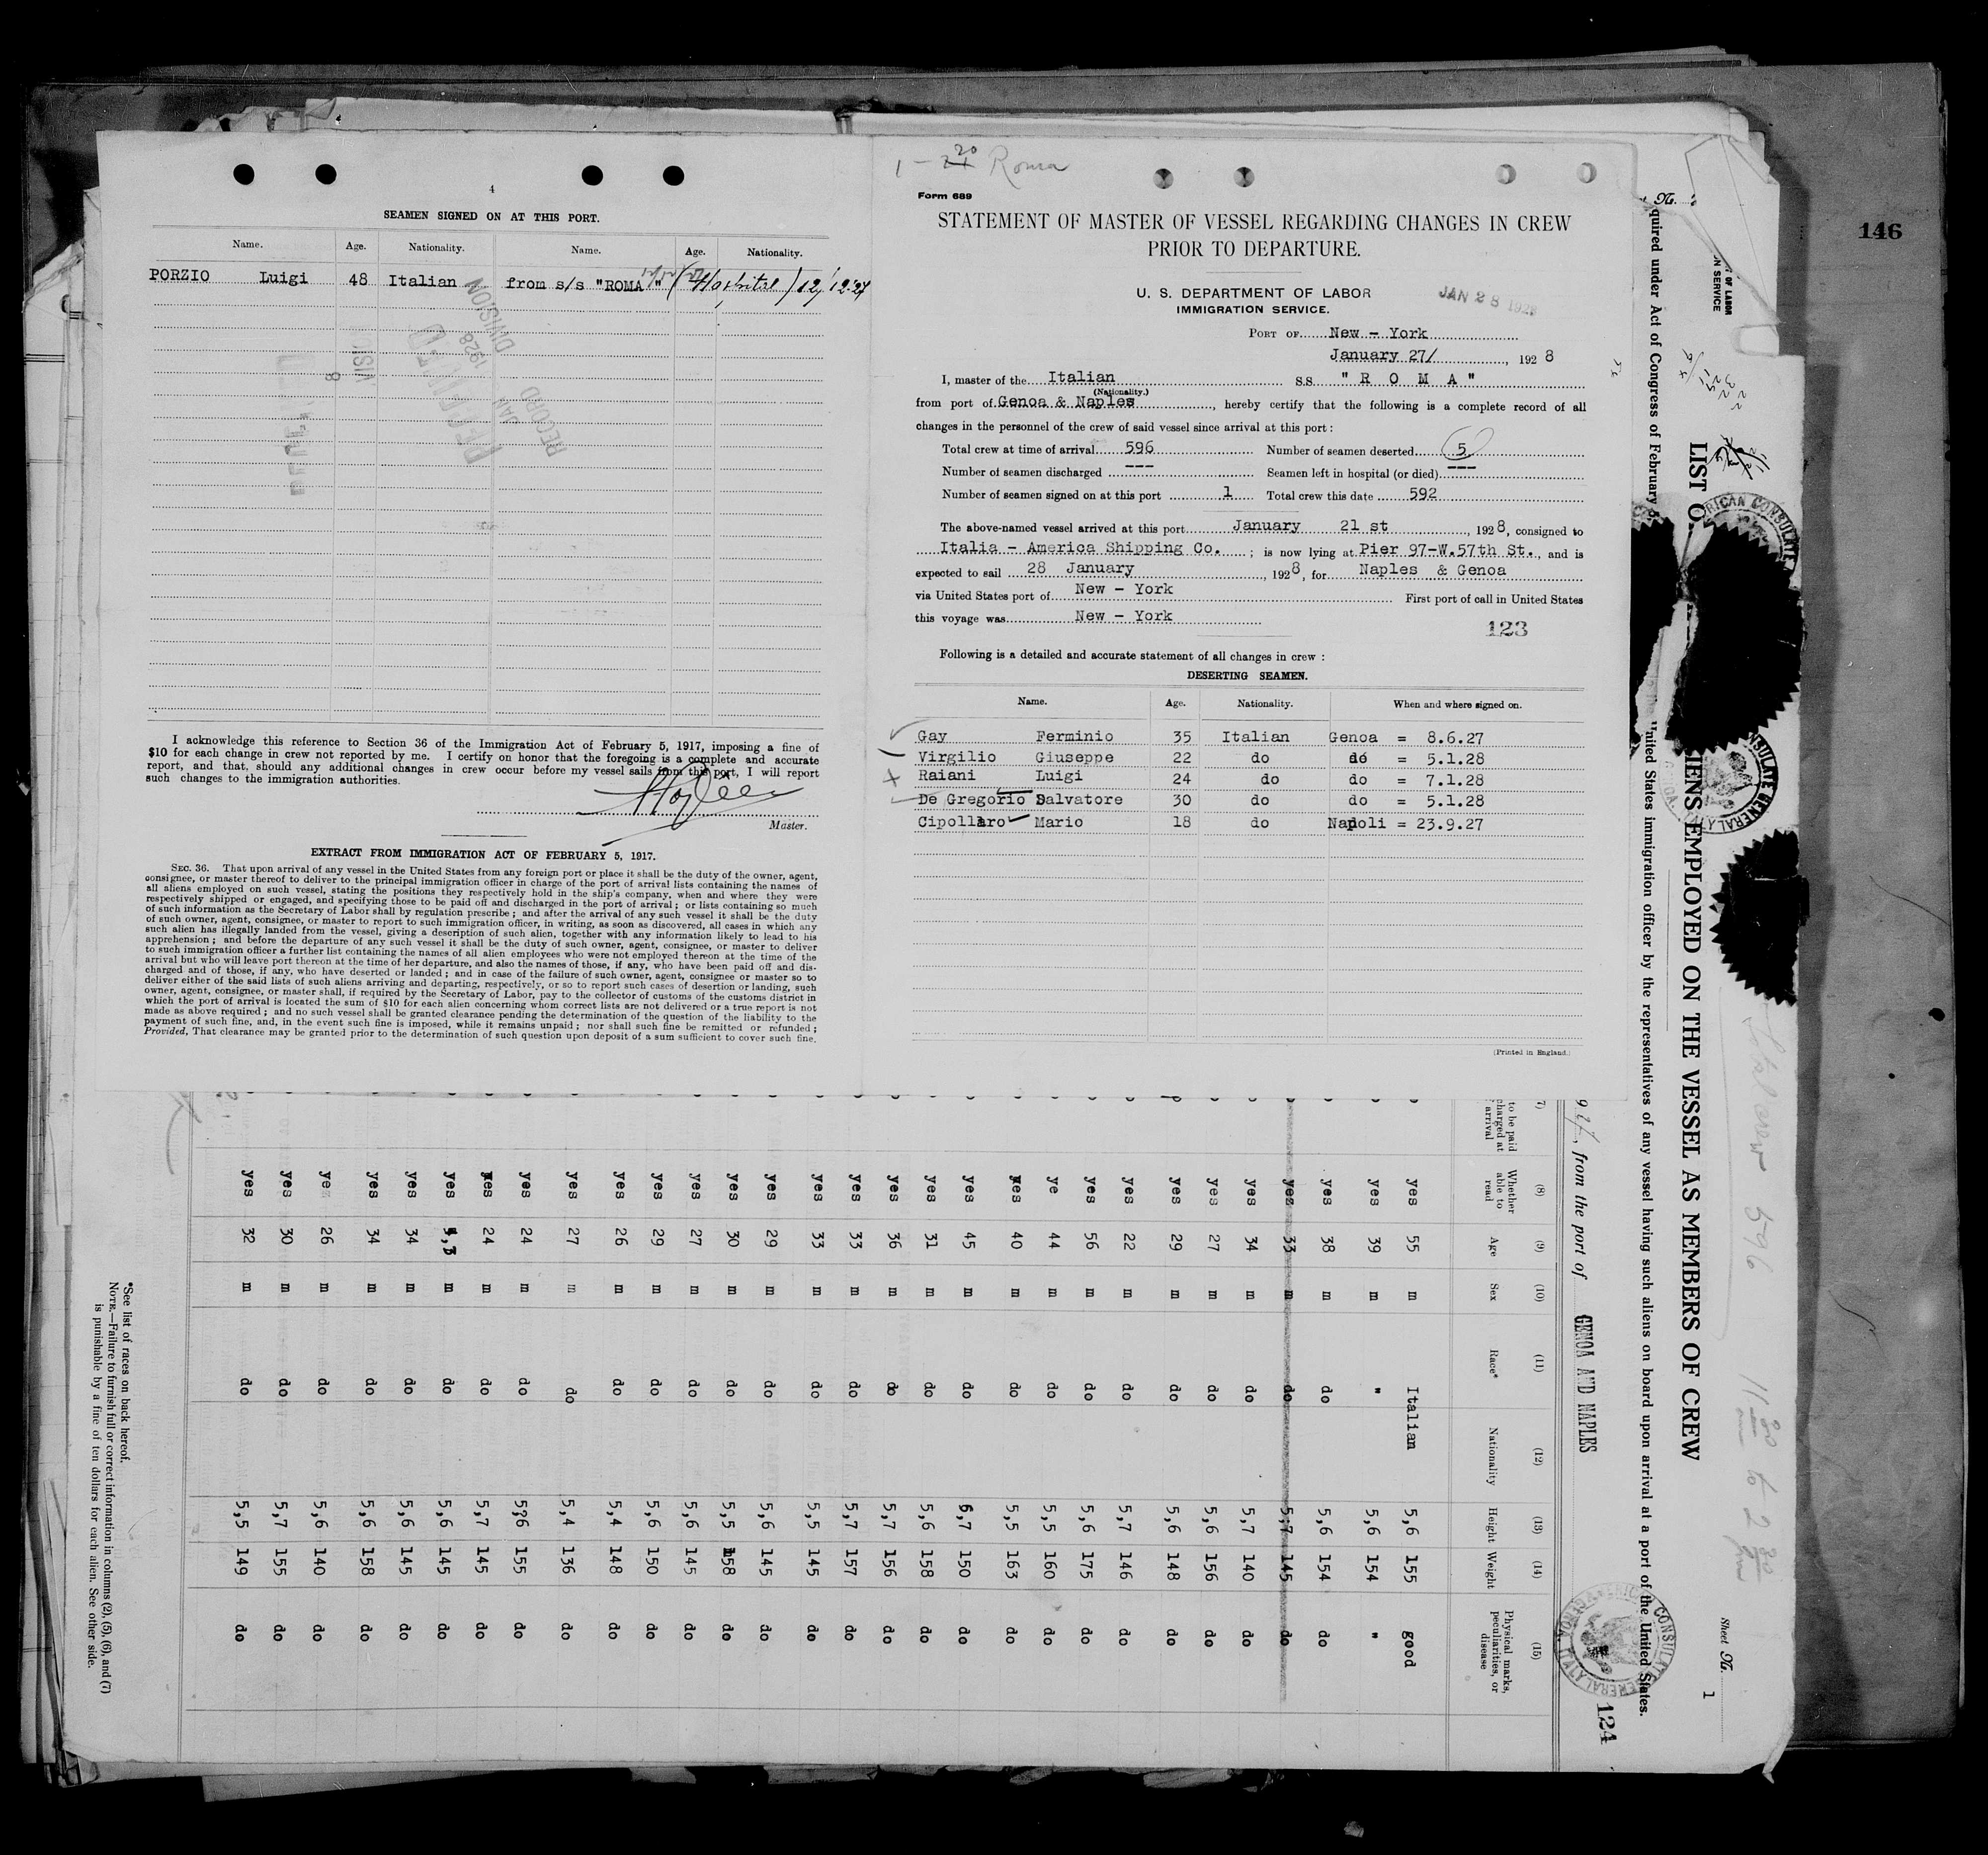 146
4
SEAMEN SIGNED ON AT THIS PORT.
Name. Age. Nationality. Name. Age. Nationality.
PORZIO Luigi 48 Italian from s/s "ROMA" (Hospital) 12/12.27
RECEIVED
1928
RECORD DIVISION
I acknowledge this reference to Section 36 of the Immigration Act of February 5, 1917, imposing a fine of
$10 for each change in crew not reported by me. I certify on honor that the foregoing is a complete and accurate
report, and that, should any additional changes in crew occur before my vessel sails from this port, I will report
such changes to the immigration authorities.
Master.
EXTRACT FROM IMMIGRATION ACT OF FEBRUARY 5, 1917.
SEC. 36. That upon arrival of any vessel in the United States from any foreign port or place it shall be the duty of the owner, agent,
consignee, or master thereof to deliver to the principal immigration officer in charge of the port of arrival lists containing the names of
all aliens employed on such vessel, stating the positions they respectively hold in the ship's company, when and where they were
respectively shipped or engaged, and specifying those to be paid off and discharged in the port of arrival; or lists containing so much
of such information as the Secretary of Labor shall by regulation prescribe; and after the arrival of any such vessel it shall be the duty
of such owner, agent, consignee, or master to report to such immigration officer, in writing, as soon as discovered, all cases in which any
such alien has illegally landed from the vessel, giving a description of such alien, together with any information likely to lead to his
apprehension; and before the departure of any such vessel it shall be the duty of such owner, agent, consignee, or master to deliver
to such immigration officer a further list containing the names of all alien employees who were not employed thereon at the time of the
arrival but who will leave port thereon at the time of her departure, and also the names of those, if any, who have been paid off and dis-
charged and of those, if any, who have deserted or landed; and in case of the failure of such owner, agent, consignee or master so to
deliver either of the said lists of such aliens arriving and departing, respectively, or so to report such cases of desertion or landing, such
owner, agent, consignee, or master shall, if required by the Secretary of Labor, pay to the collector of customs of the customs district in
which the port of arrival is located the sum of $10 for each alien concerning whom correct lists are not delivered or a true report is not
made as above required; and no such vessel shall be granted clearance pending the determination of the question of the liability to the
payment of such fine, and, in the event such fine is imposed, while it remains unpaid; nor shall such fine be remitted or refunded;
Provided, That clearance may be granted prior to the determination of such question upon deposit of a sum sufficient to cover such fine.
1 - 21 20 Roma
Form 689
STATEMENT OF MASTER OF VESSEL REGARDING CHANGES IN CREW
PRIOR TO DEPARTURE.
U. S. DEPARTMENT OF LABOR
IMMIGRATION SERVICE.
JAN 28 1928
PORT OF New - York
January 27/, 1928
I, master of the Italian S.S. "R O M A"
(Nationality.)
from port of Genoa & Naples, hereby certify that the following is a complete record of all
changes in the personnel of the crew of said vessel since arrival at this port:
Total crew at time of arrival 596 Number of seamen deserted 5
Number of seamen discharged --- Seamen left in hospital (or died) ---
Number of seamen signed on at this port 1 Total crew this date 592
The above-named vessel arrived at this port January 21 st, 1928, consigned to
Italia - America Shipping Co. ; is now lying at Pier 97-W.57th St., and is
expected to sail 28 January, 1928, for Naples & Genoa
via United States port of New - York First port of call in United States
this voyage was New - York
123
Following is a detailed and accurate statement of all changes in crew:
DESERTING SEAMEN.
Name. Age. Nationality. When and where signed on.
Gay Ferminio 35 Italian Genoa = 8.6.27
Virgilio Giuseppe 22 do do = 5.1.28
Raiani Luigi 24 do do = 7.1.28
De Gregorio Salvatore 30 do do = 5.1.28
Cipollaro Mario 18 do Napoli = 23.9.27
(Printed in England.)
Sheet No. 1
LIST O MENS EMPLOYED ON THE VESSEL AS MEMBERS OF CREW
quired under Act of Congress of February 5 United States immigration officer by the representatives of any vessel having such aliens on board upon arrival at a port of the United States.
T OF LABOR
N SERVICE
AMERICAN CONSULATE GENERAL
124
from the port of GENOA AND NAPLES
596
11 30 to 2 30
(7) (8) (9) (10) (11) (12) (13) (14) (15)
to be paid charged at arrival Whether able to read Age Sex Race* Nationality Height Weight Physical marks, peculiarities, or disease
yes 55 m Italian 5,6 155 good
yes 39 m " 5,6 154 "
yes 38 m do 5,6 154 do
yes 33 m do 5,7 145 do
yes 34 m do 5,7 140 do
yes 27 m do 5,6 156 do
yes 29 m do 5,6 148 do
yes 22 m do 5,7 146 do
yes 56 m do 5,6 175 do
ye 44 m do 5,5 160 do
yes 40 m do 5,5 163 do
yes 45 m do 6,7 150 do
yes 31 m do 5,6 158 do
yes 36 m do 5,7 156 do
yes 33 m do 5,7 157 do
yes 33 m do 5,5 145 do
yes 29 m do 5,6 145 do
yes 30 m do 5,5 158 do
yes 27 m do 5,6 145 do
yes 29 m do 5,6 150 do
yes 26 m do 5,4 148 do
yes 27 m do 5,4 136 do
yes 24 m do 5,6 155 do
yes 24 m do 5,7 145 do
yes m do 5,6 145 do
yes 34 m do 5,6 145 do
yes 34 m do 5,6 158 do
yes 26 m do 5,6 140 do
yes 30 m do 5,7 155 do
yes 32 m do 5,5 149 do
*See list of races on back hereof.
NOTE.—Failure to furnish full or correct information in columns (2), (5), (6), and (7)
is punishable by a fine of ten dollars for each alien. See other side.